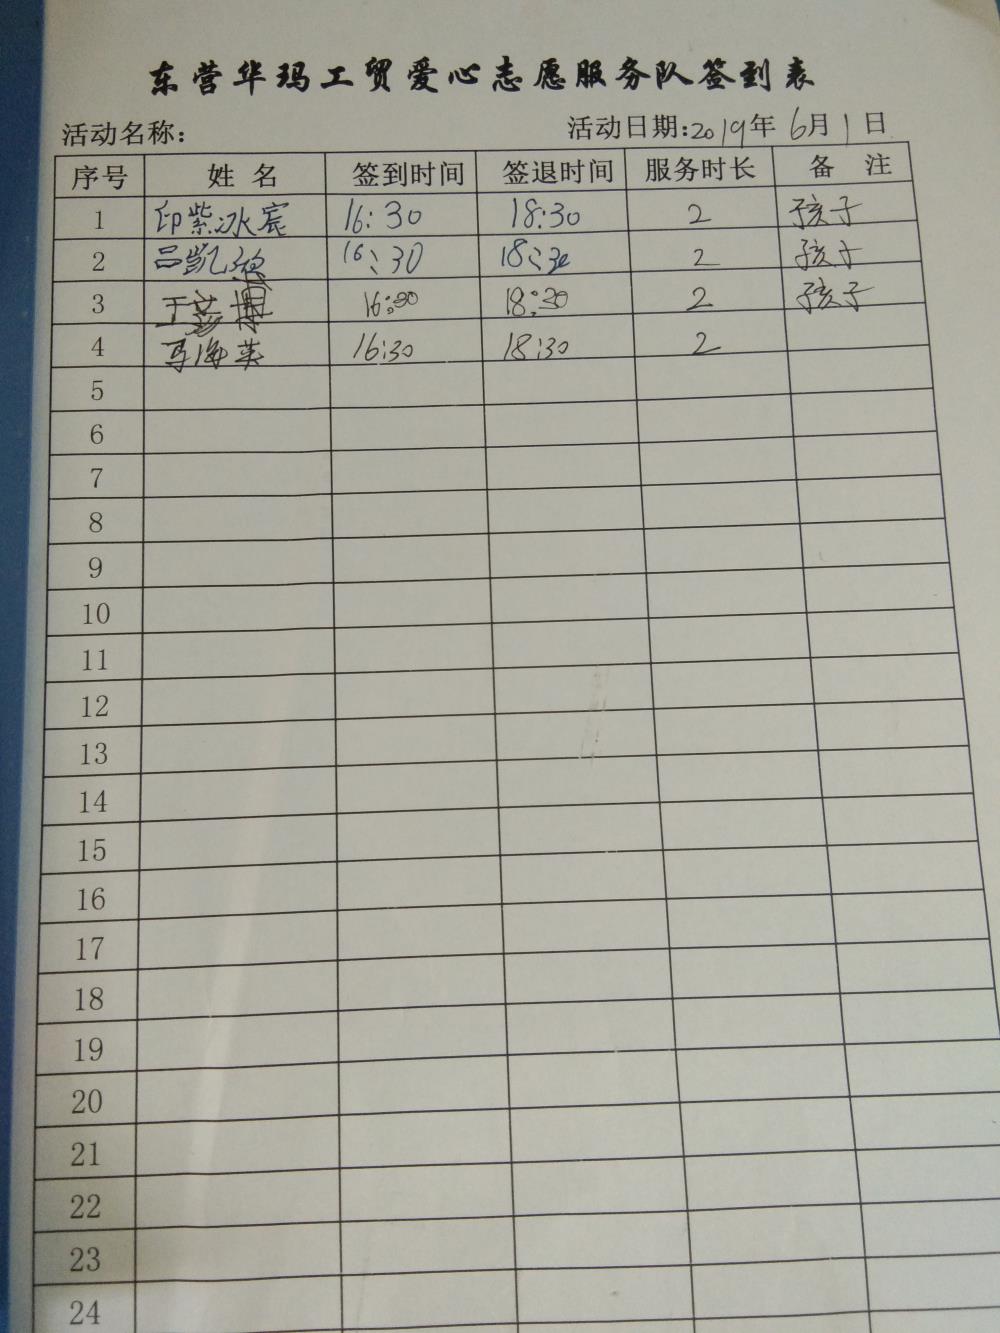 东营华玛工贸爱心志愿服务队签到表
活动名称: 活动日期:2019年 6月1日
序号 姓名 签到时间 签退时间 服务时长 备注
1 印紫冰宸 16:30 18:30 2 孩子
2 吕凯 16:30 18:30 2 孩子
3 16:30 18:30 2 孩子
4 马海英 16:30 18:30 2
5
6
7
8
9
10
11
12
13
14
15
16
17
18
19
20
21
22
23
24